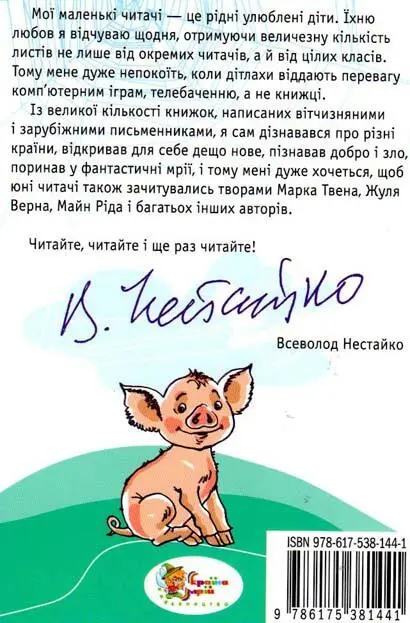 Мої маленькі читачі — це рідні улюблені діти. Їхню
любов я відчуваю щодня, отримуючи величезну кількість
листів не лише від окремих читачів, а й від цілих класів.
Тому мене дуже непокоїть, коли дітлахи віддають перевагу
комп'ютерним іграм, телебаченню, а не книжці.
Із великої кількості книжок, написаних вітчизняними
і зарубіжними письменниками, я сам дізнавався про різні
країни, відкривав для себе дещо нове, пізнавав добро і зло,
поринав у фантастичні мрії, і тому мені дуже хочеться, щоб
юні читачі також зачитувались творами Марка Твена, Жуля
Верна, Майн Ріда і багатьох інших авторів.
Читайте, читайте і ще раз читайте!
В. Нестайко
Всеволод Нестайко
ISBN 978-617-538-144-1
Країна
мрій
видавництво
9 786175 381441